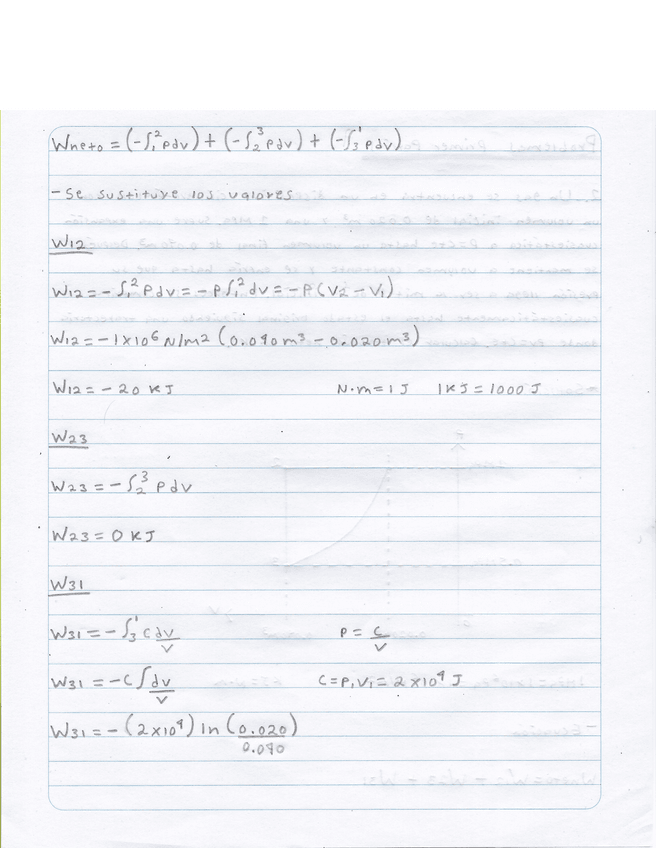 Wneto = (-∫₁² Pdv) + (-∫₂³ Pdv) + (-∫₃¹ Pdv)
- Se sustituye los valores
W12
W12 = -∫₁² Pdv = -P∫₁² dv = -P(V2 - V1)
W12 = -1x10⁶ N/m2 (0.040 m³ - 0.020 m³)
W12 = -20 KJ N·m = 1 J 1KJ = 1000 J
W23
W23 = -∫₂³ Pdv
W23 = 0 KJ
W31
W31 = -∫₃¹ C dv/V P = C/V
W31 = -C ∫ dv/V C = P₁V₁ = 2x10⁴ J
W31 = -(2x10⁴) ln (0.020/0.040)